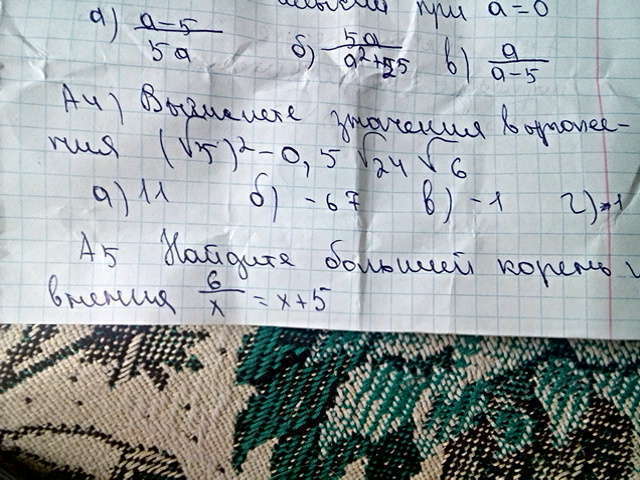 при a=0
а) a-5/5a б) 5a/a²+25 в) a/a-5
А4) Вычислете значения выраже-
ния (√5)²-0,5√24√6
а) 11 б) -67 в) -1 г) 1
А5 Найдите больший корень
внения 6/x = x+5